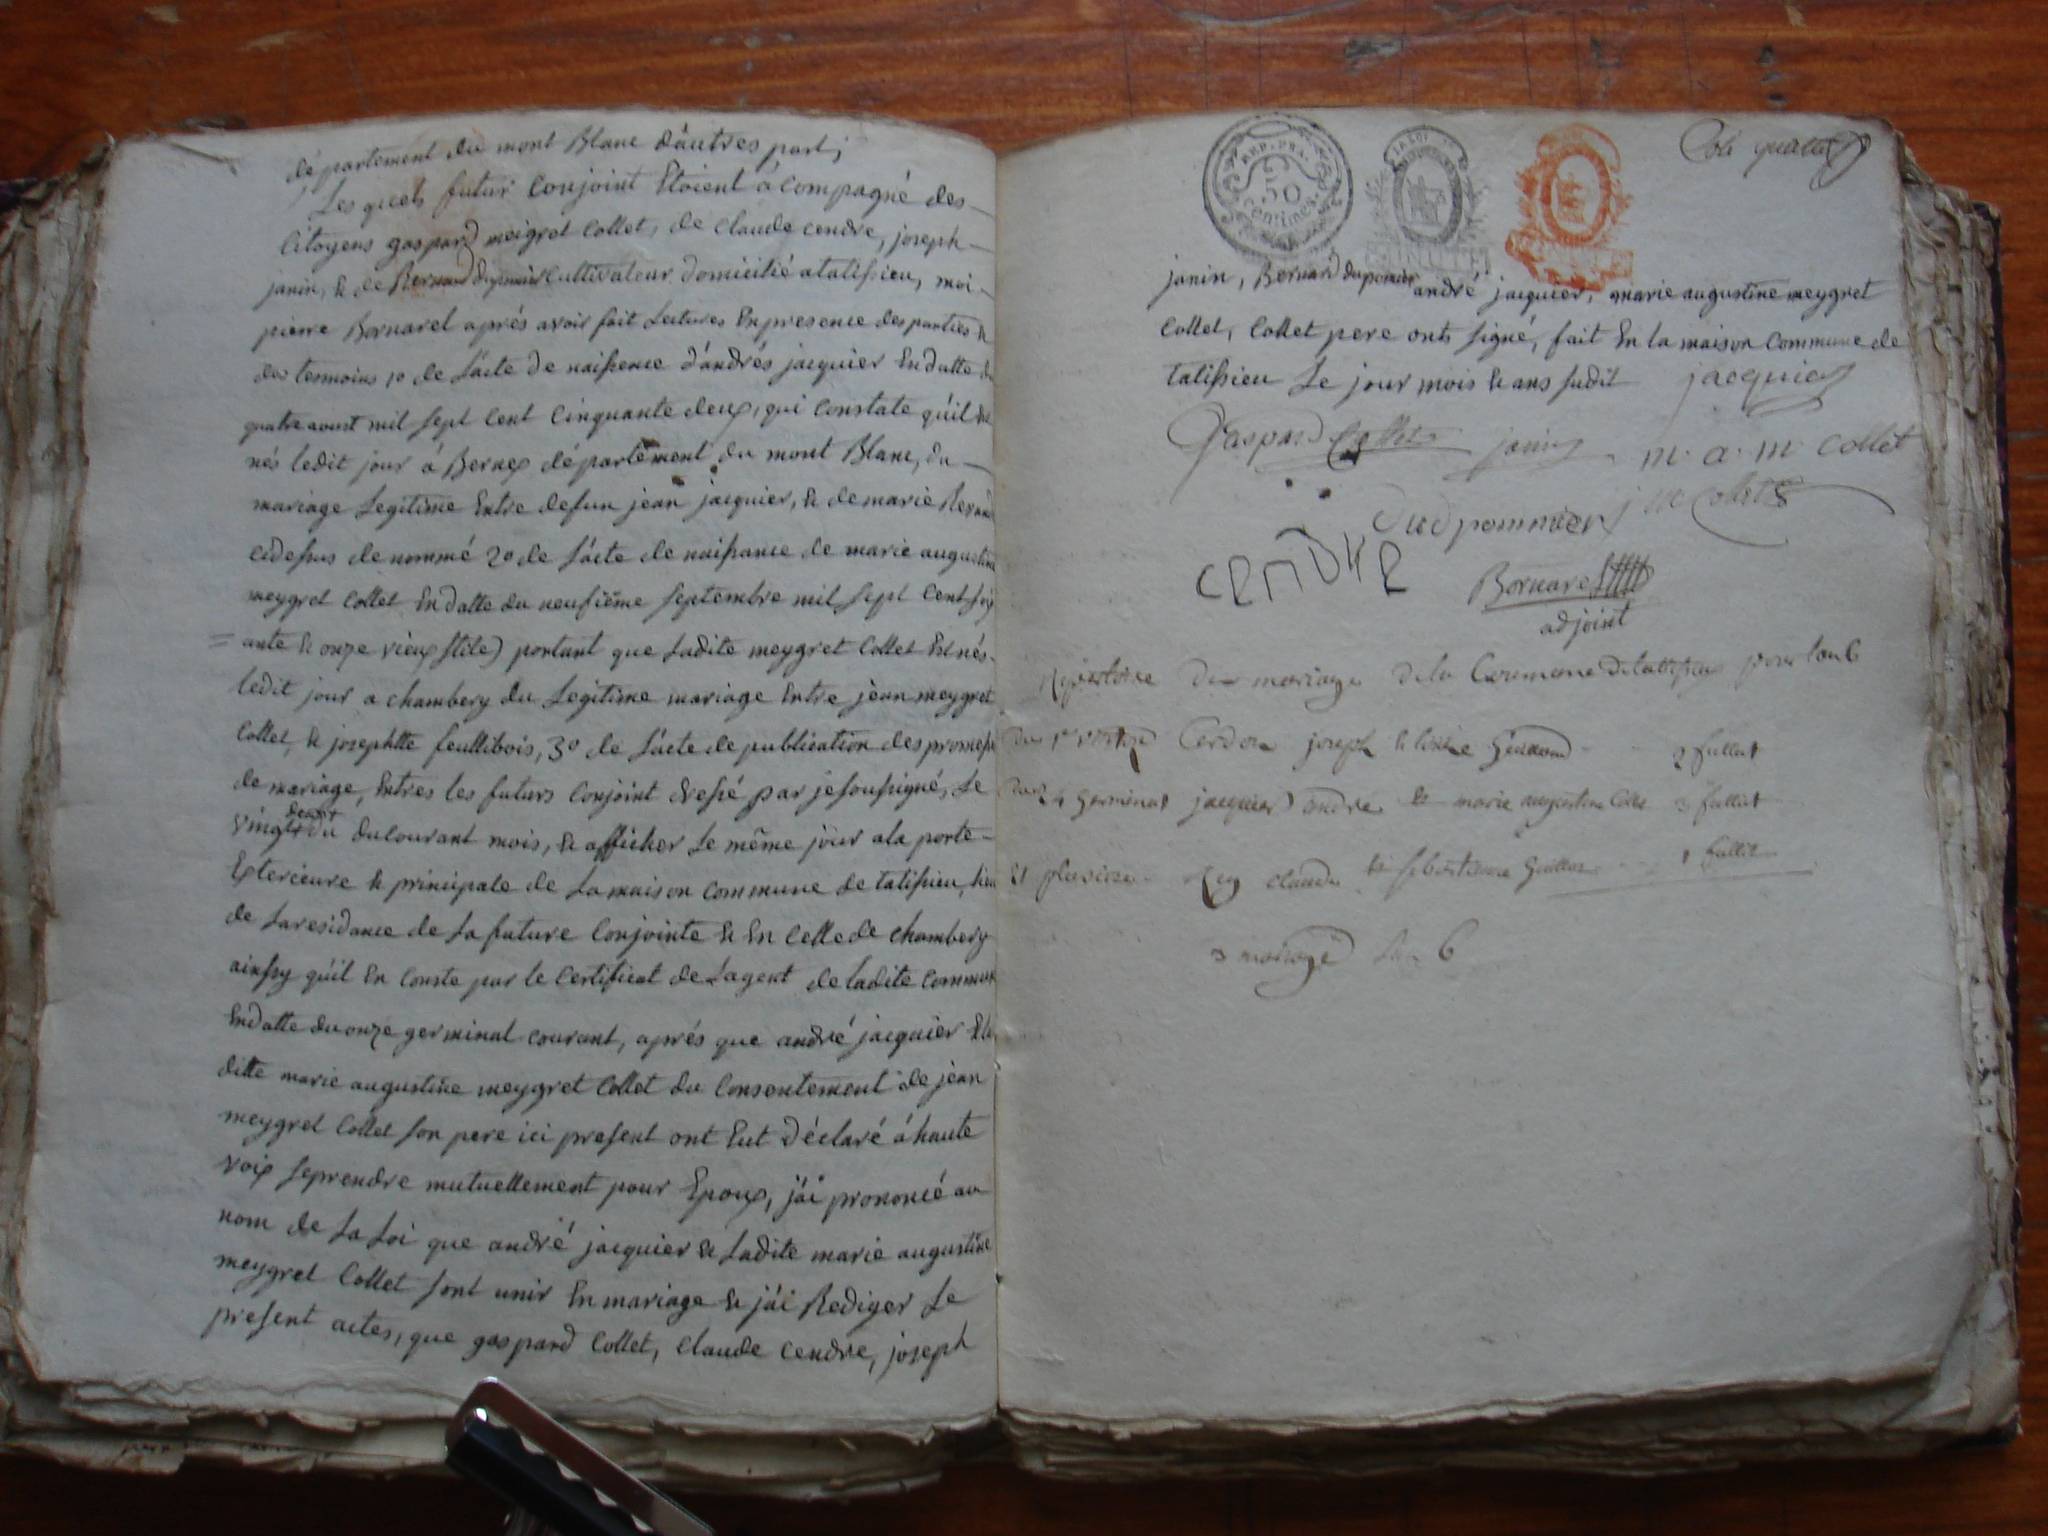 département du mont Blanc d'autres part;
Les quels futur Conjoint Etoient á Compagné des
Citoyens gaspard meigret Collet, de Claude Cendre, joseph
janin, & de Bernard duponier Cultivateur domicilié a talissieu, moi
pierre Bornarel aprés avoir fait Lectures En presence des parties &
des temoins 1o de L'acte de naissence d'andrés jacquier En datte du
quatre aoust mil sept Cent Cinquante deux, qui Constate qu'il Est
nés ledit jour á Bernex département du mont Blanc, du
mariage Legitime Entre defun jean jacquier, & de marie
cidessus de nommé 2o de L'acte de naissance de marie augustine
meygret Collet En datte du neufiême septembre mil sept Cent soix
ante & onze vieux stile) portant que Ladite meygret Collet Est nés
ledit jour a chambery du Legitime mariage Entre jean meygret
Collet, & josephtte feullibois, 3o de L'acte de publication des promesse
de mariage, Entres les futurs Conjoint dressé par je soussigné, Le
vingt du du Courant mois, & afficher Le même jour a la porte
Exterieure & principale de La maison Commune de talissieu, lieu
de La residance de La future Conjointe & En Celle de chambery
ainssy qu'il En Conste par le Certificat de L'agent de ladite Commune
En datte du onze germinal courant, aprés que andré jacquier & la
ditte marie augustine meygret Collet du Consentement de jean
meygret Collet son pere ici present ont Eut déclaré á haute
voix se prendre mutuellement pour Epoux, j'ai prononcé au
nom de La Loi que andré jacquier & Ladite marie augustine
meygret Collet sont unir En mariage & j'ai Rediger Le
present actes, que gaspard Collet, Claude Cendre, joseph
REP. FRA.
50
centimes
Cote quatre
janin, Bernard duponier andré jacquier, marie augustine meygret
Collet, Collet pere onts signé, fait En la maison Commune de
talissieu Le jour mois & ans sudit jacquier
Gaspard Collet janin m. a. m. Collet
Dudpommier
cendre
Bornarel
adjoint
Repertoire des mariage de la Commune de talissieu pour l'an 6
du 1er Cerdon joseph &
du 24 germinal jacquier andre & marie augustine Collet
Rey claude &
3 mariage l'an 6